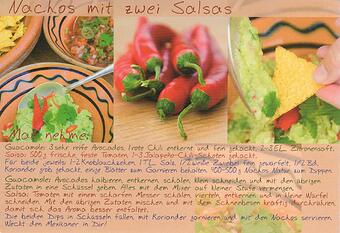 Nachos mit zwei Salsas
Man nehme:
Guacamole: 3 sehr reife Avocados, 1 rote Chili entkernt und fein gehackt, 2-3 EL Zitronensaft.
Salsa: 500g frische feste Tomaten, 1-3 Jalapeño-Chili-Schoten gehackt.
Für beide jeweils 1-2 Knoblauchzehen, 1 TL Salz, 1/2 weiße Zwiebel fein gewürfelt, 1/2 Bd.
Koriander grob gehackt, einige Blätter zum Garnieren behalten. 400-500g Nachos Natur zum Dippen.
Guacamole: Avocados halbieren, entkernen, schälen, klein schneiden und mit den übrigen
Zutaten in eine Schüssel geben. Alles mit dem Mixer auf kleiner Stufe vermengen.
Salsa: Tomaten mit einem scharfen Messer schälen, vierteln, entkernen und in kleine Würfel
schneiden. Mit den übrigen Zutaten mischen und mit dem Schneebesen kräftig durchrühren,
damit sich das Aroma besser entfaltet.
Die beiden Dips in Schüsseln füllen, mit Koriander garnieren und mit den Nachos servieren.
Weckt den Mexikaner in Dir!